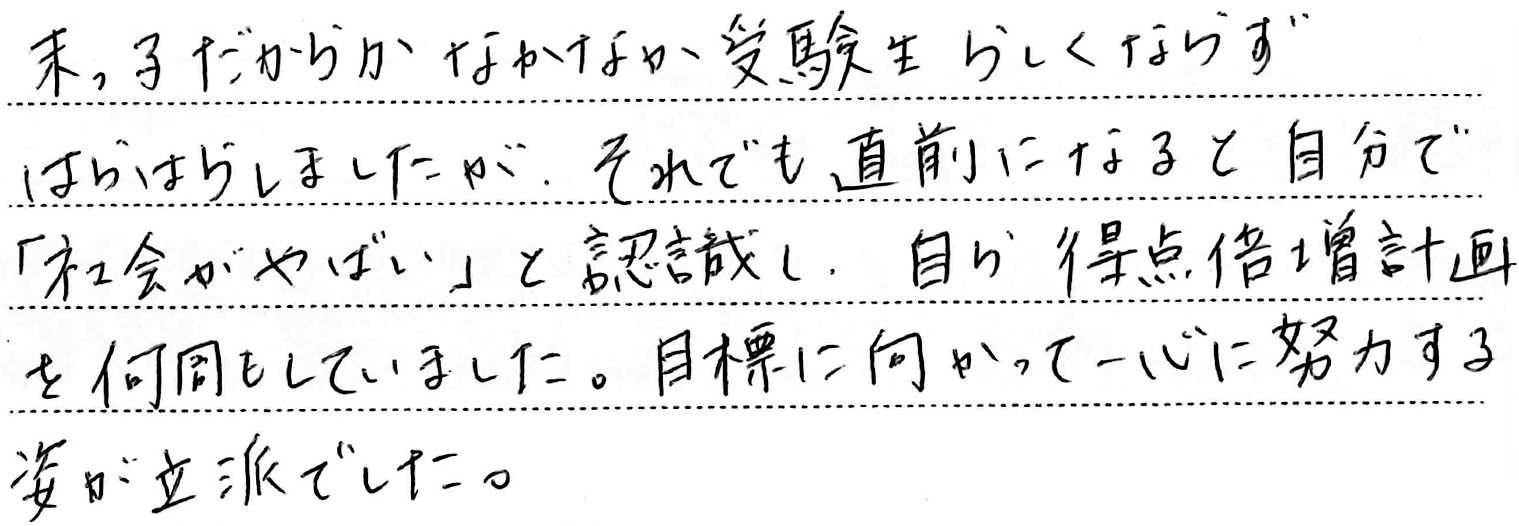 末っ子だからか なかなか受験生らしくならず
はらはらしましたが、それでも直前になると自分で
「社会がやばい」と認識し、自ら得点倍増計画
を何周もしていました。目標に向かって一心に努力する
姿が立派でした。